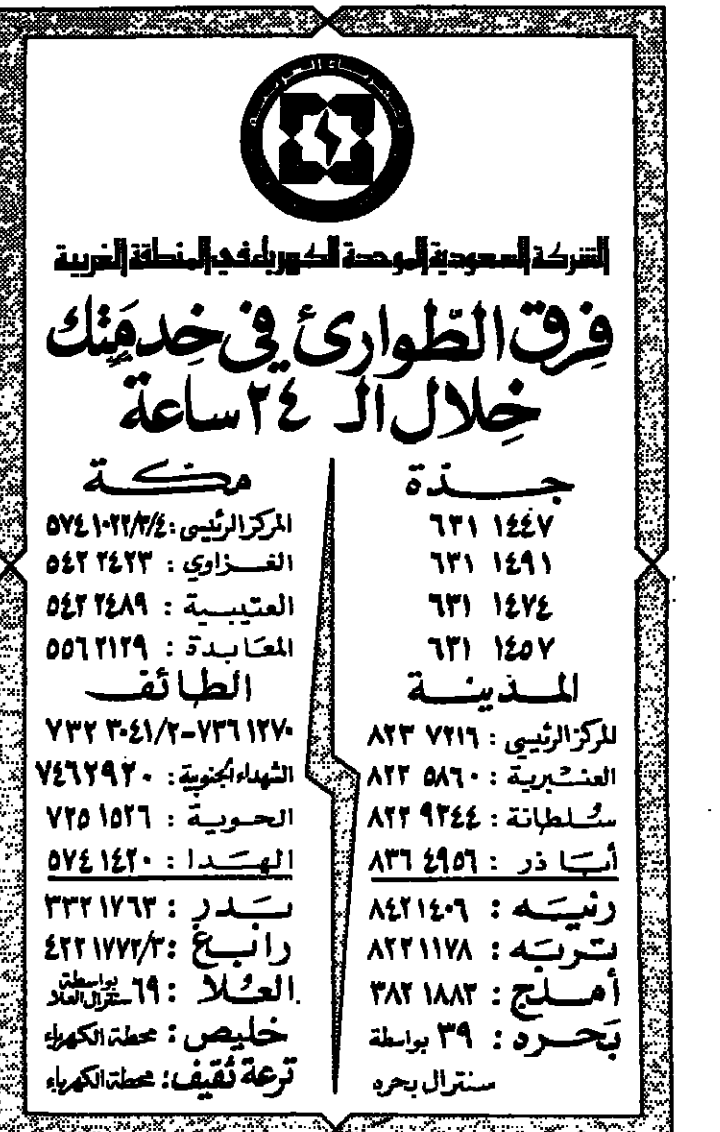 الشركة السعودية الموحدة للكهرباء في المنطقة الغربية
فِرق الطّوارئ في خِدمَتِك
خِلال الـ ٢٤ ساعة
جــدّة
٦٣١ ١٤٤٧
٦٣١ ١٤٩١
٦٣١ ١٤٧٤
٦٣١ ١٤٥٧
المــدينــة
المركز الرئيسي : ٨٢٣ ٧٢١٦
العنـبرية : ٨٢٢ ٥٨٦٠
سُـلطانة : ٨٢٢ ٩٣٤٤
أبــا ذر : ٨٣٦ ٤٩٥٦
رنيــه : ٨٤٢١٤٠٦
تـربـه : ٨٢٢١١٧٨
أمــلج : ٣٨٢ ١٨٨٣
بَـحــره : ٣٩ بواسطة
سنترال بحره
مكــة
المركز الرئيسي : ٥٧٤١٠٢٢/٣/٤
الغــزاوي : ٥٤٢ ٢٤٢٣
العتيبـيـة : ٥٤٢ ٢٤٨٩
المعَـابـدة : ٥٥٦ ٢١٢٩
الطائف
٧٣٦١٢٧٠–٧٣٢ ٣٠٤١/٢
الشهداء الجنوبية : ٧٤٦٢٩٢٠
الحـويـة : ٧٢٥ ١٥٢٦
الهــدا : ٥٧٤١٤٢٠
بــدر : ٣٣٢١٧٦٣
رابــغ : ٤٢٢١٧٧٢/٣
العُــلا : ٦٩ بواسطة سنترال العلا
خليص : محطة الكهرباء
ترعة ثقيف : محطة الكهرباء